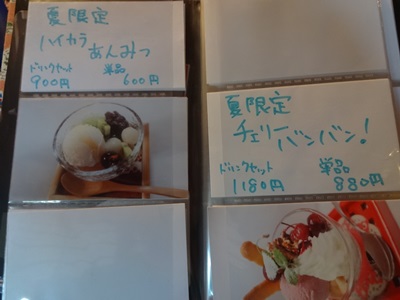 夏限定
ハイカラ
あんみつ
ドリンクセット 単品
900円 600円
夏限定
チェリーバンバン!
ドリンクセット 単品
1180円 880円